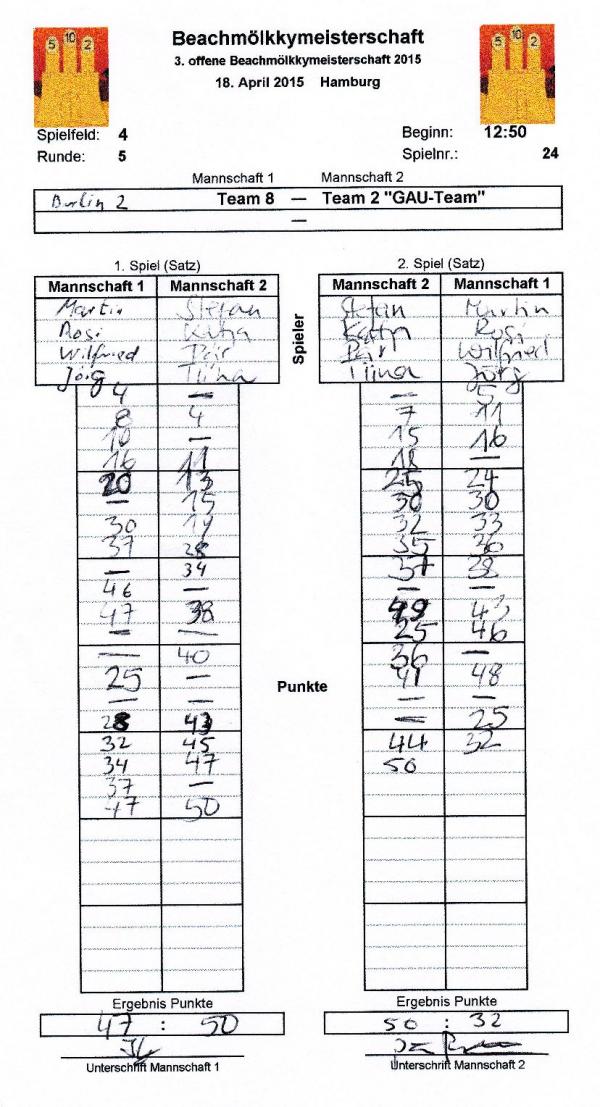 5 10 2
5 10 2
Beachmölkkymeisterschaft
3. offene Beachmölkkymeisterschaft 2015
18. April 2015 Hamburg
Spielfeld: 4 Beginn: 12:50
Runde: 5 Spielnr.: 24
Mannschaft 1 Mannschaft 2
Berlin 2 Team 8 — Team 2 "GAU-Team"
—
1. Spiel (Satz) 2. Spiel (Satz)
Mannschaft 1 Mannschaft 2 Mannschaft 2 Mannschaft 1
Martin Stefan Stefan Martin
Rosi Katja Katja Rosi
Wilfried Pär Pär Wilfried
Jörg Tiina Tiina Jörg
Spieler
4 — — 5
8 4 7 11
10 — 15 16
16 11 18 —
20 13 25 24
— 15 30 30
30 19 32 33
37 28 35 36
— 34 37 38
46 — — —
47 38 49 43
— — 25 46
— 40 36 —
25 — 41 48
Punkte
— — — —
28 43 — 25
32 45 44 32
34 47 50
37 —
47 50
Ergebnis Punkte Ergebnis Punkte
47 : 50 50 : 32
Unterschrift Mannschaft 1 Unterschrift Mannschaft 2